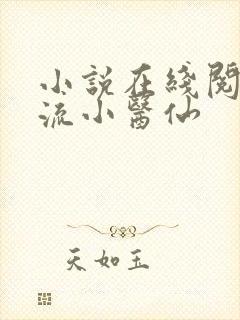 小說在綫閱
流小醫仙
天如玉